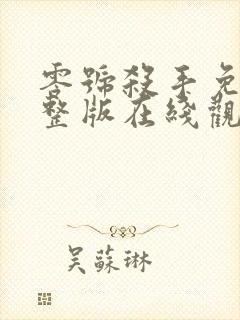 零號殺手免
整版在綫觀
吳蘇琳